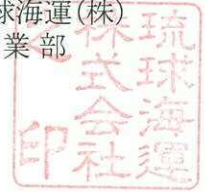 球海運(株)
業 部
琉球海運
株式会社
之印